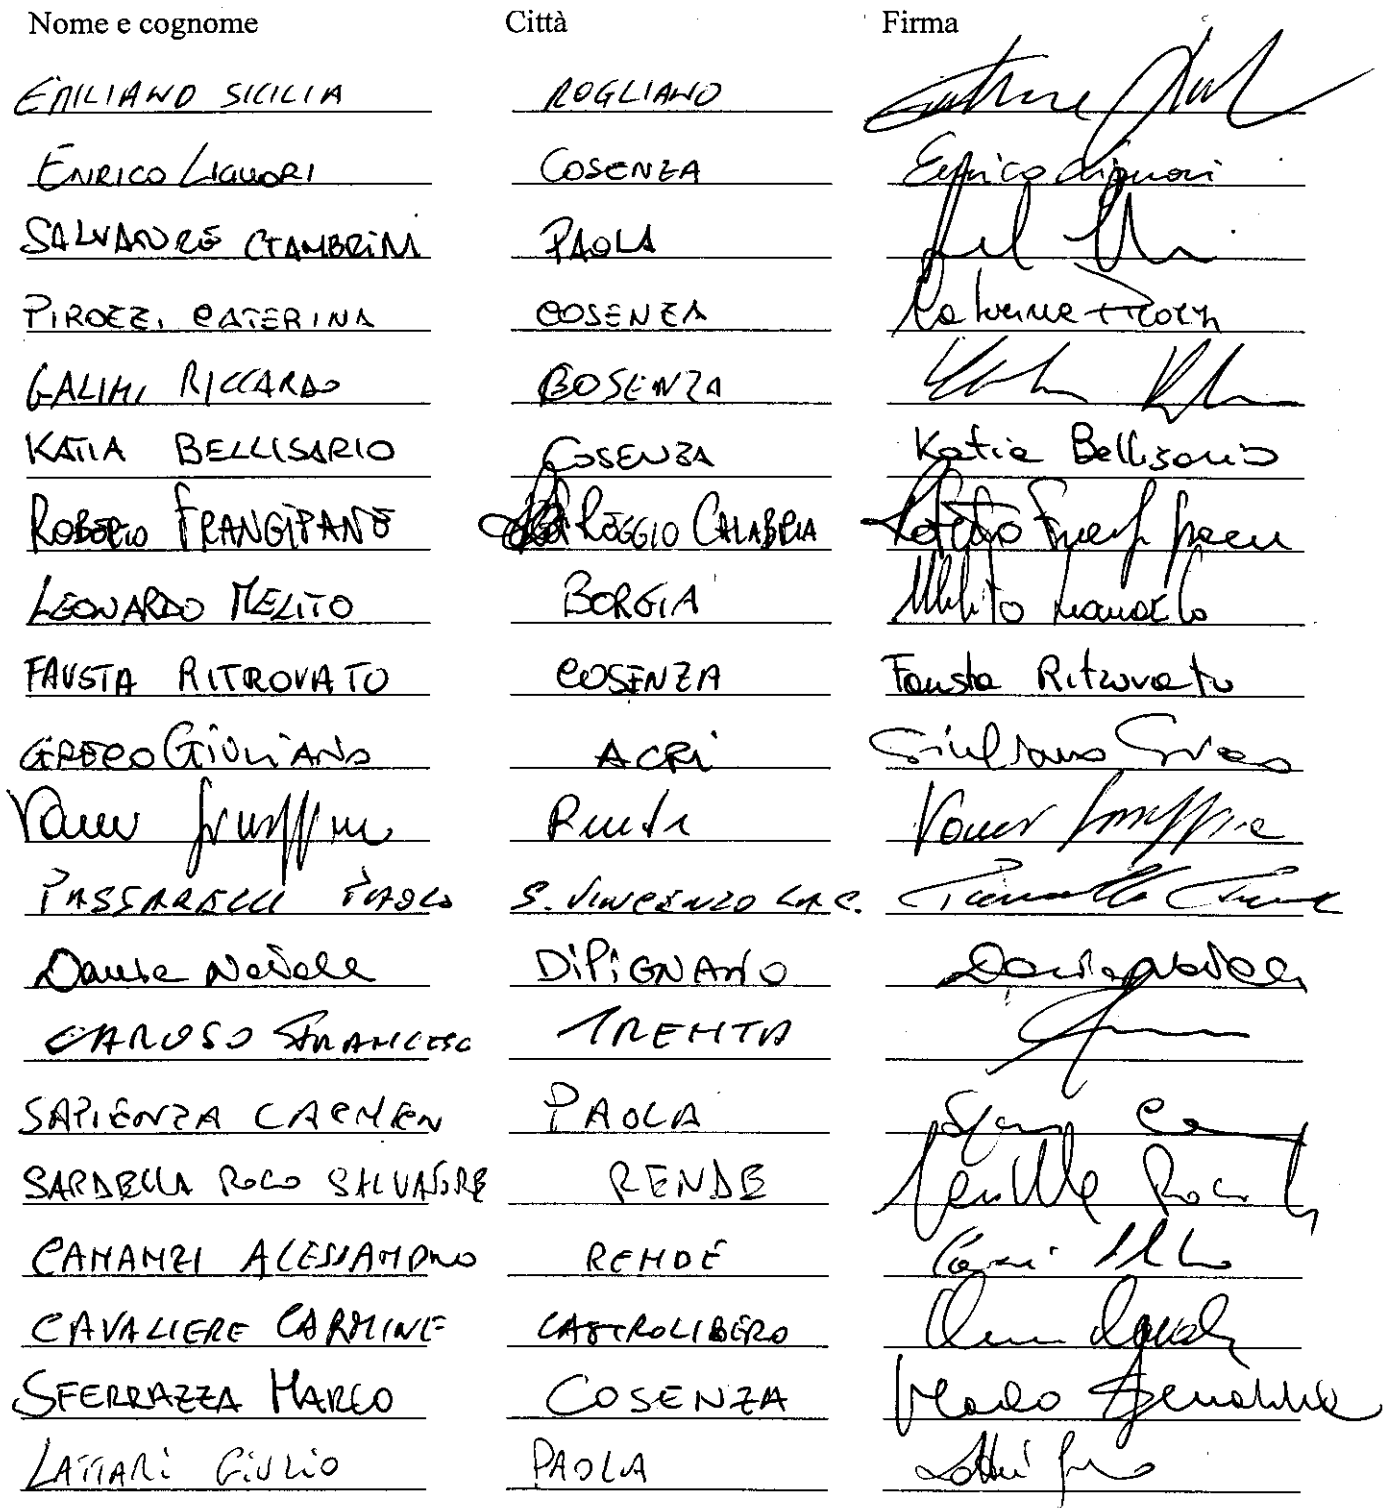 Nome e cognome Città Firma
EMILIANO SICILIA ROGLIANO
ENRICO LIGUORI COSENZA Enrico Liguori
SALVATORE CIAMBRINI PAOLA
PIROZZI CATERINA COSENZA Caterina Pirozzi
GALIMI RICCARDO COSENZA
KATIA BELLISARIO COSENZA Katia Bellisario
ROBERTO FRANGIPANE REGGIO CALABRIA Roberto Frangipane
LEONARDO MELITO BORGIA Melito Leonardo
FAUSTA RITROVATO COSENZA Fausta Ritrovato
GRECO GIULIANO ACRI Giuliano Greco
PASSARELLI PAOLO S. VINCENZO LA C.
DIPIGNANO
CARUSO FRANCESCO TRENTA
SAPIENZA CARMEN PAOLA
SARDELLA ROCO SALVATORE RENDE
CANANZI ALESSANDRO RENDE
CAVALIERE CARMINE CASTROLIBERO
SFERRAZZA MARCO COSENZA Marco Sferrazza
LATTARI GIULIO PAOLA